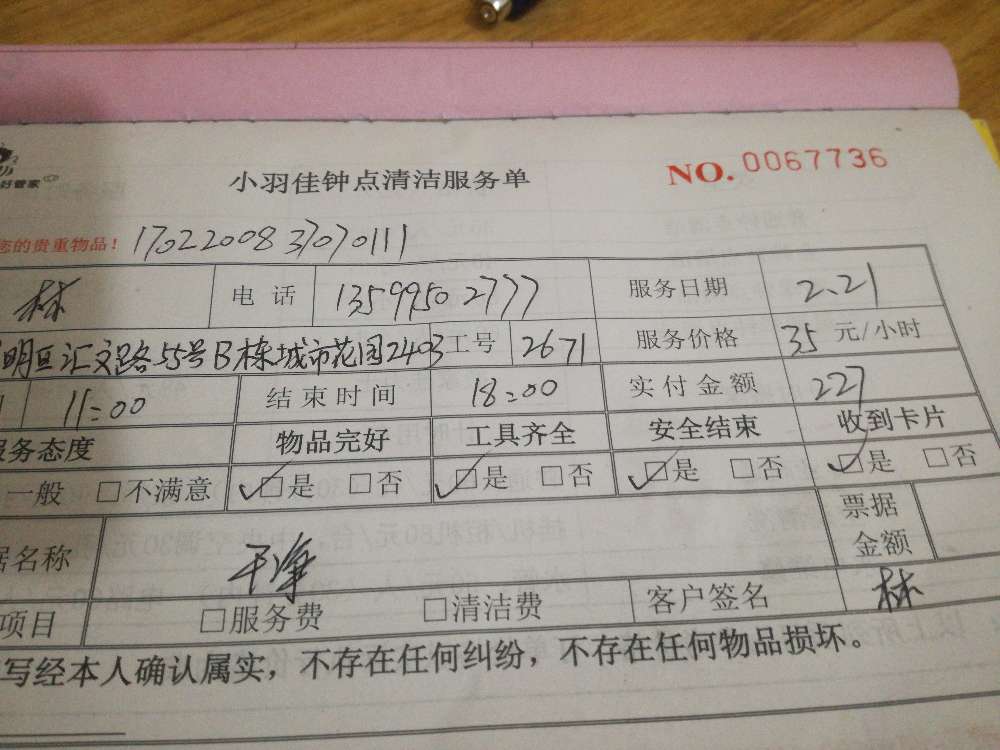 好管家
小羽佳钟点清洁服务单 NO. 0067736
您的贵重物品! 17022008 37070111
林 电话 13599502777 服务日期 2.21
明亘汇文路55号B栋城市花园2403 工号 2671 服务价格 35 元/小时
11:00 结束时间 18:00 实付金额 227
服务态度 物品完好 工具齐全 安全结束 收到卡片
一般 □不满意 □是 □否 □是 □否 □是 □否 □是 □否
据名称 干净 票据金额
项目 □服务费 □清洁费 客户签名 林
写经本人确认属实，不存在任何纠纷，不存在任何物品损坏。